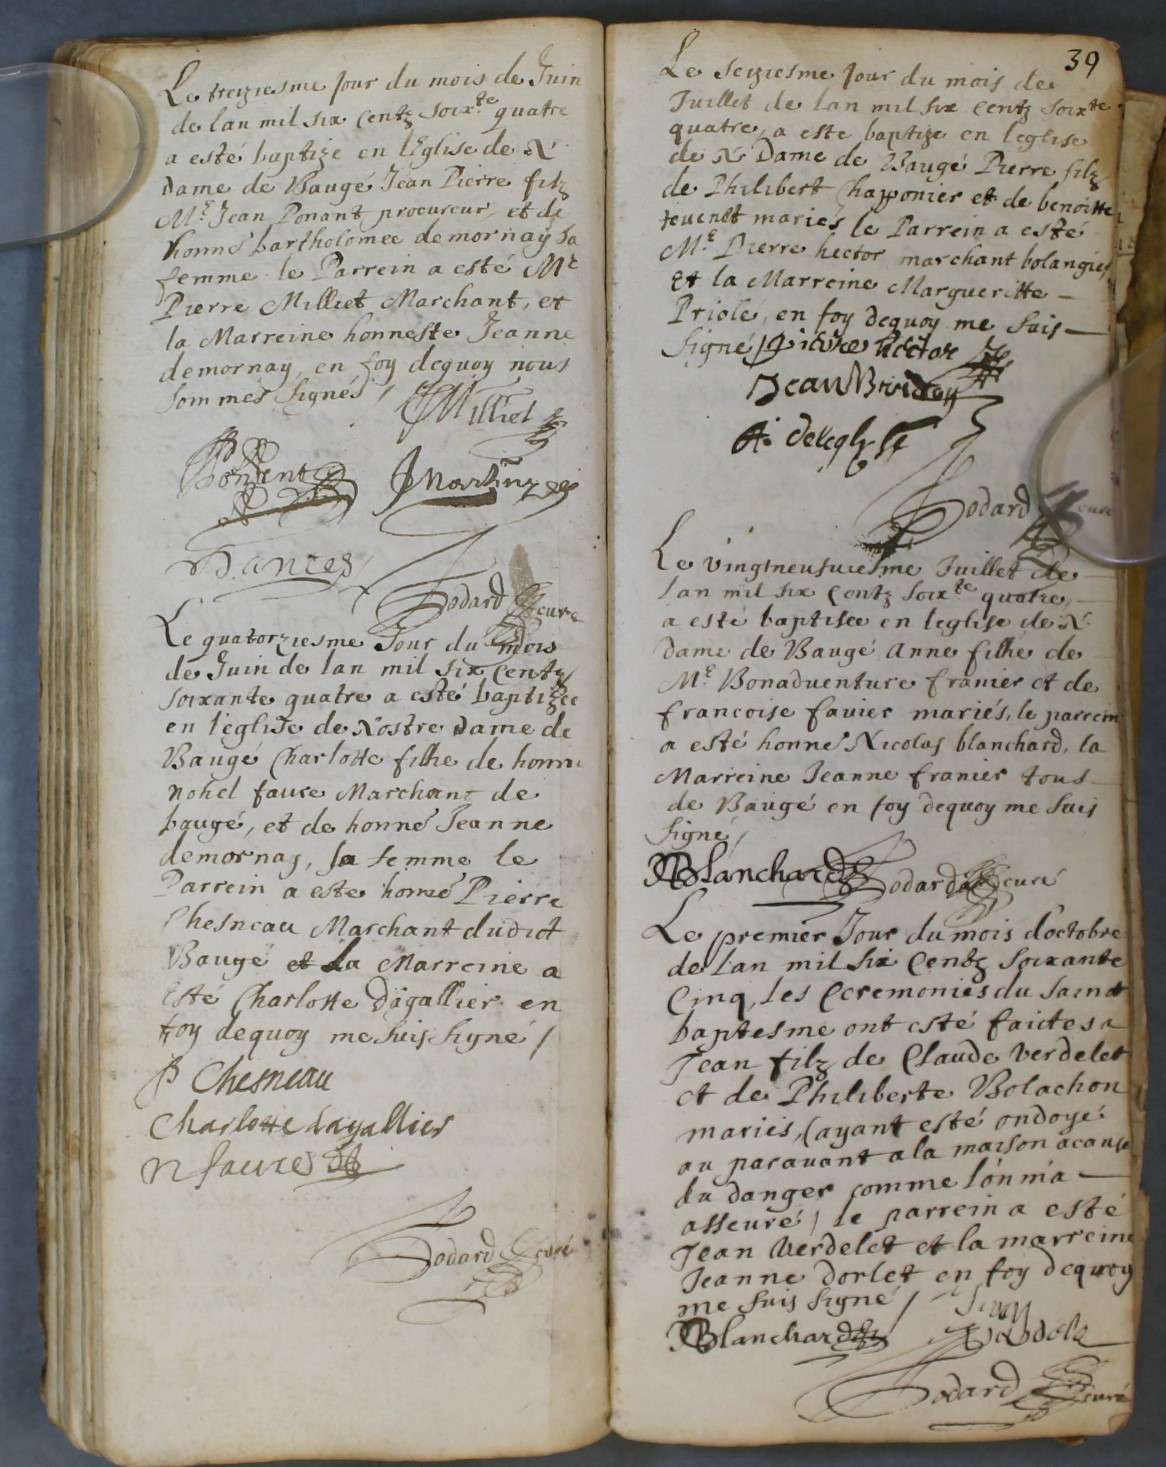 Le treziesme Jour du mois de Juin
de lan mil six centz soixte quatre
a esté baptize en l'Eglise de N
Dame de Baugé Jean Pierre filz
Mr Jean Ponant procureur, et de
honne bartholomee demornay sa
femme le Parrein a esté Mr
Pierre Milliet Marchant, et
la Marreine honneste Jeanne
demornay, en foy dequoy nous
sommes signés /
Milliet
Ponent Martin
Dances
Godard curé
Le quatorziesme Jour du mois
de Juin de lan mil six centz
soixante quatre a esté baptizee
en l'eglise de Nostre Dame de
Baugé Charlotte filhe de honne
nohel faure Marchant de
baugé, et de honné Jeanne
demornay, sa femme le
Parrein a este honné Pierre
Chesneau Marchant dudict
Baugé et La Marreine a
Esté Charlotte Dagallier en
foy dequoy me suis signé /
P Chesneau
Charlotte dagallier
n faure
Godard curé
39
Le Seiziesme Jour du mois de
Juillet de lan mil six centz soixte
quatre, a este baptize en l'eglise
de N Dame de Baugé Pierre filz
de Philibert Chaponier et de benoitte
tevenet mariés le Parrein a esté
Mr Pierre hector marchant bolangier
Et la Marreine Margueritte
Priolé, en foy dequoy me suis
Signé / Pierre hector
Jean
Godard curé
Le vingtneufviesme Juillet de
lan mil six centz soixte quatre,
a esté baptisee en leglise de N
Dame de Baugé Anne filhe de
Mr Bonaduenture franier et de
francoise favier mariés, le parrein
a esté honne Nicolas blanchard, la
Marreine Jeanne franier tous
de Baugé en foy dequoy me suis
Signé /
NBlanchard Godard curé
Le premier Jour du mois d'octobre
de Lan mil six Centz soixante
Cinq, les Ceremonies du sainct
baptesme ont esté faictes a
Jean filz de Claude Verdelet
et de Philiberte Bolachon
mariés, (ayant esté ondoyé
au paravant a la maison a cause
du danger comme l'on m'a
asseuré) le parrein a esté
Jean Verdelet et la marreine
Jeanne dorlet en foy dequoy
me suis signé /
NBlanchard
Godard curé